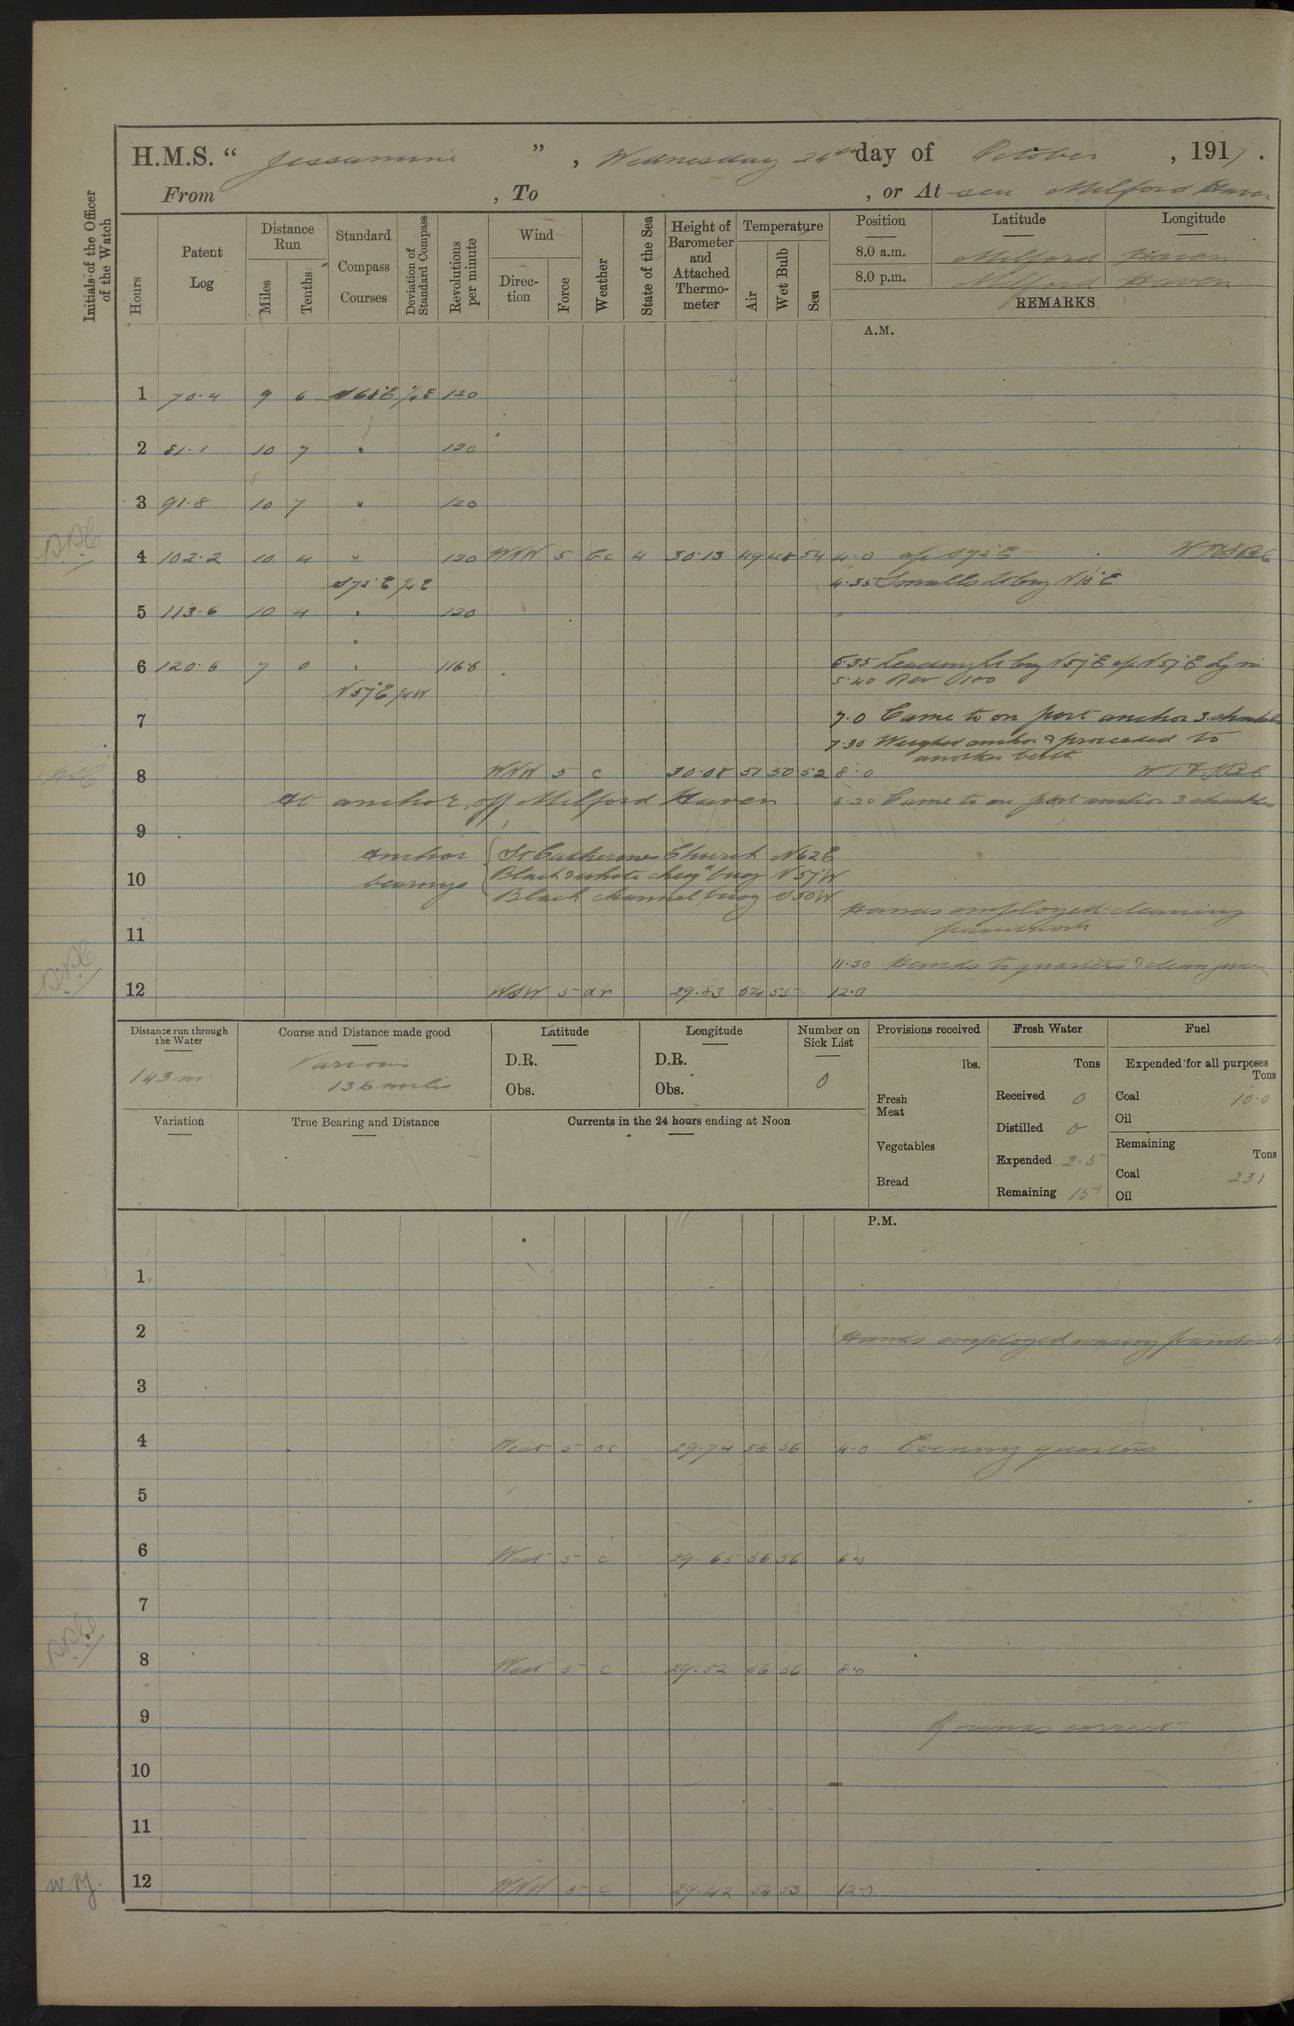 H.M.S. “ Jessamine ” , Wednesday 24th day of October , 1917 .
From , To , or At sea Milford Haven
Initials of the Officer of the Watch
Hours
Patent Log
Distance Run
Miles
Tenths
Standard Compass Courses
Deviation of Standard Compass
Revolutions per minute
Wind
Direction
Force
Weather
State of the Sea
Height of Barometer and Attached Thermometer
Temperature
Air
Wet Bulb
Sea
Position Latitude Longitude
8.0 a.m. Milford Haven
8.0 p.m. Milford Haven
REMARKS
A.M.
1 70.4 9 6 120
2 81.1 10 7 " 120
3 91.8 10 7 " 120
4 102.2 10 4 " 120 WNW 5 bc 4 30.13 49 48 54 4.0 a/c S73°E
S73°E 4.35 Smalls Lt brg N10°E
5 113.6 10 4 " 120
6 120.6 7 0 " 116.6 5.35 Leading Lt brg N57°E a/c N57°E
N57°E 5.40 Rev 100
7 7.0 Came to on port anchor 3 shackles
7.30 Weighed anchor & proceeded to
another berth
8 WNW 5 c 30.08 51 50 52 8.0
At anchor, off Milford Haven 8.20 Came to on port anchor 3 shackles
9
Anchor bearings
St Catherines Church N62E
10 Black & white cheq buoy N57W
Black channel buoy S50W
Hands employed cleaning
paintwork
11
11.30 Hands to quarters & clean guns
12 WSW 5 or 29.83 54 55 12.0
Distance run through the Water
143 m
Course and Distance made good
Various
136 miles
Latitude
D.R.
Obs.
Longitude
D.R.
Obs.
Number on Sick List
0
Variation
True Bearing and Distance
Currents in the 24 hours ending at Noon
Provisions received
lbs.
Fresh Meat
Vegetables
Bread
Fresh Water
Tons
Received 0
Distilled 0
Expended 2.5
Remaining 15
Fuel
Expended for all purposes
Tons
Coal 10.0
Oil
Remaining
Tons
Coal 231
Oil
P.M.
1
2 Hands employed paintwork
3
4 West 5 oc 29.74 56 56 4.0 Evening quarters
5
6 West 5 c 29.65 56 56 6.0
7
8 West 5 c 29.52 56 56 8.0
9 Rounds correct
10
11
12 WNW 5 c 29.42 54 53 12.0